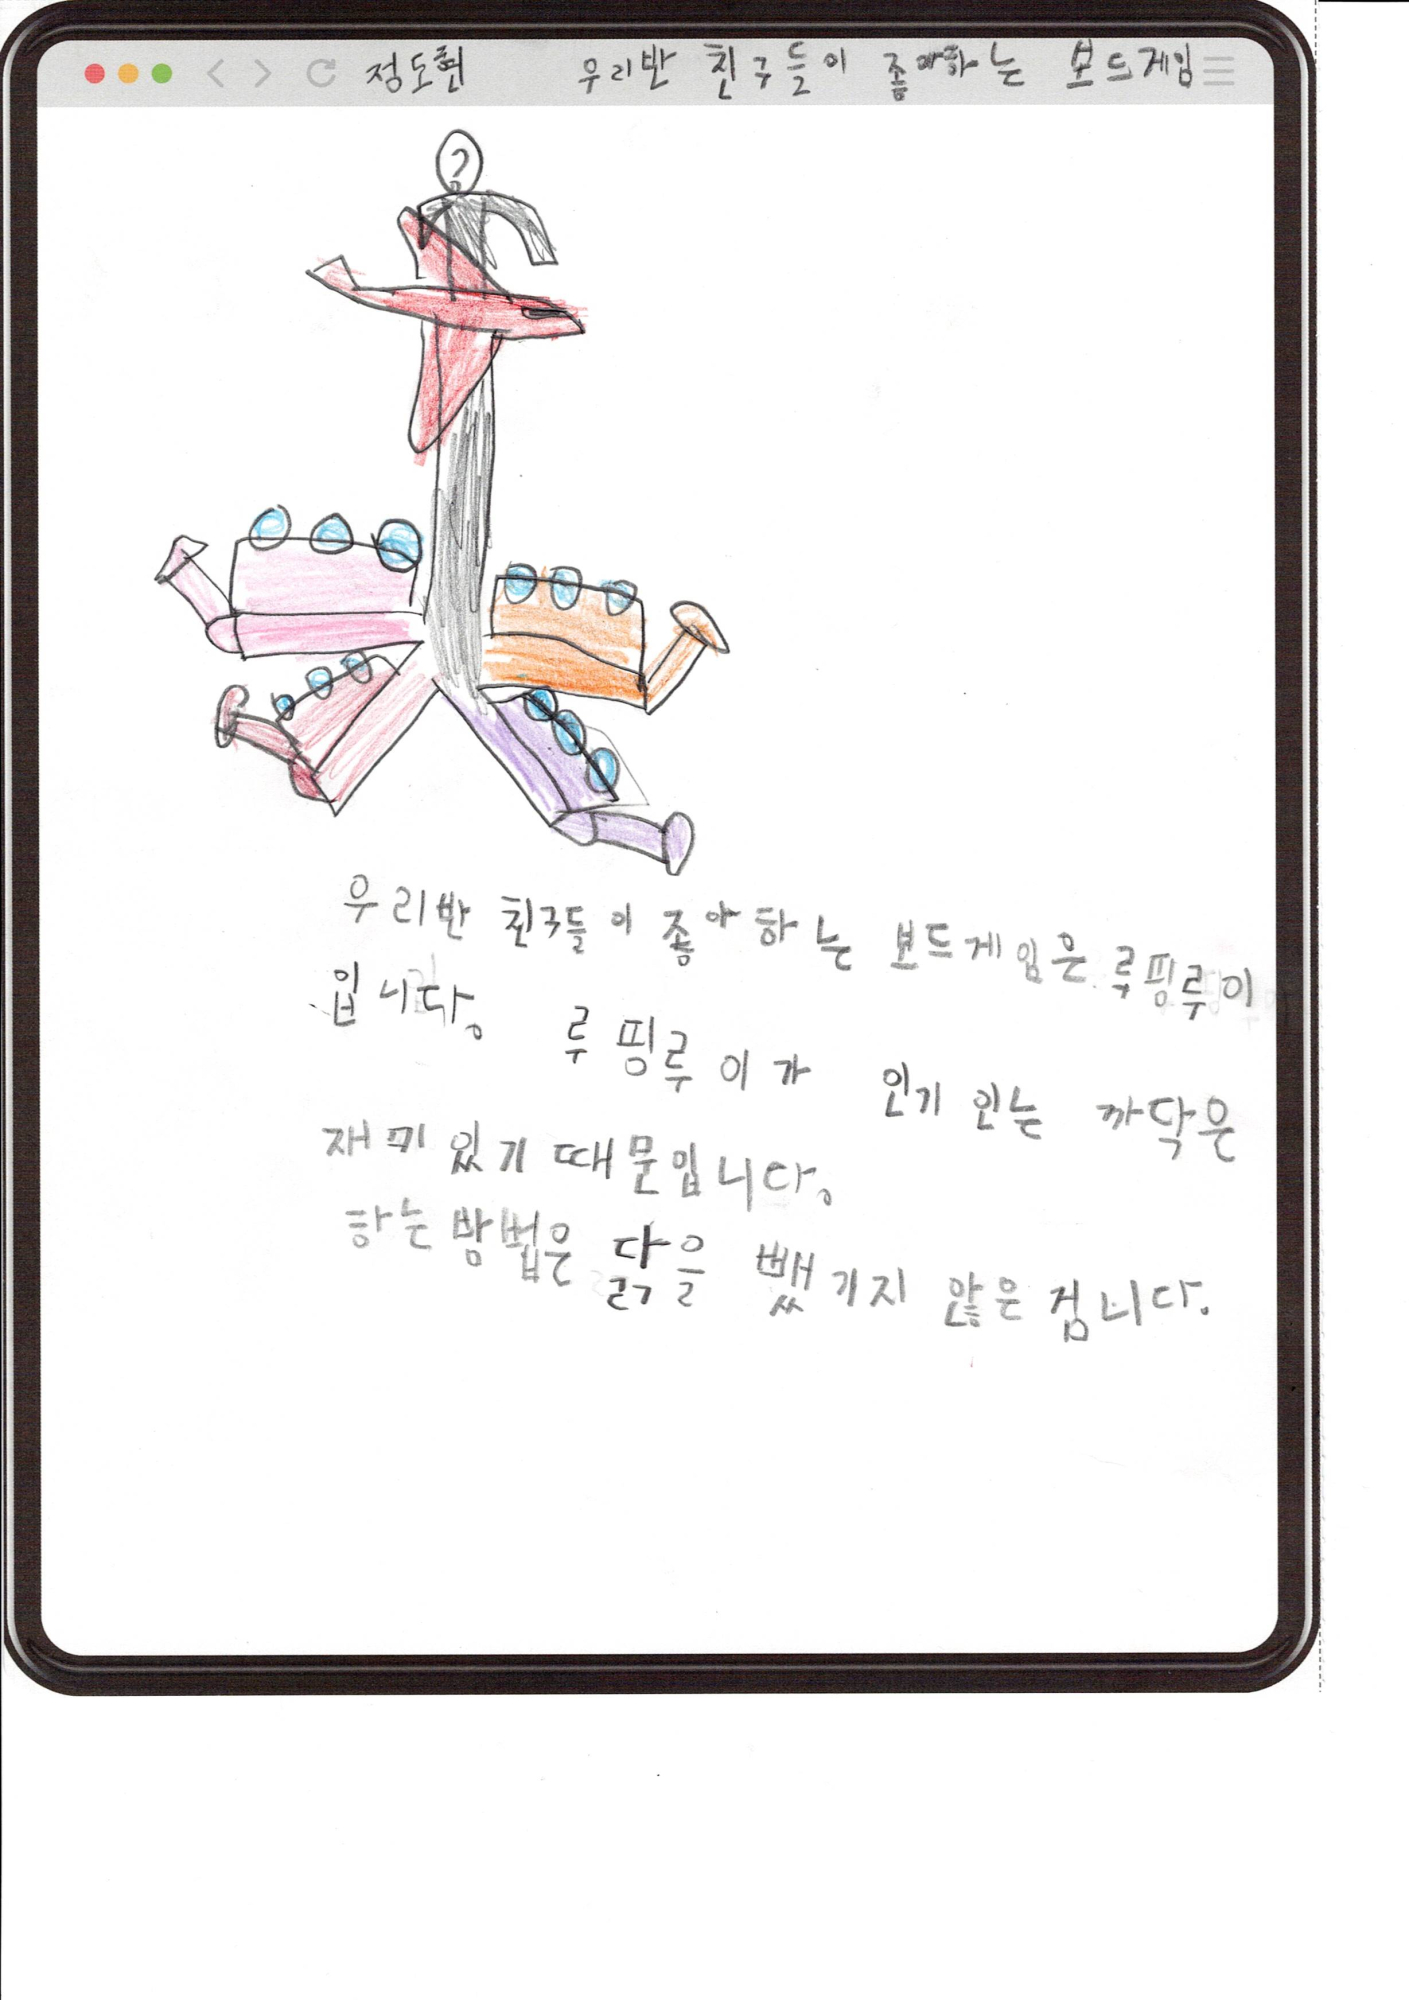 정도현 우리반 친구들이 좋아하는 보드게임
?
우리반 친구들이 좋아하는 보드게임은 루핑루이
입니다. 루핑루이가 인기 인는 까닥은
재미있기 때문입니다.
하는 방법은 닭을 뺐기지 않은 겁니다.